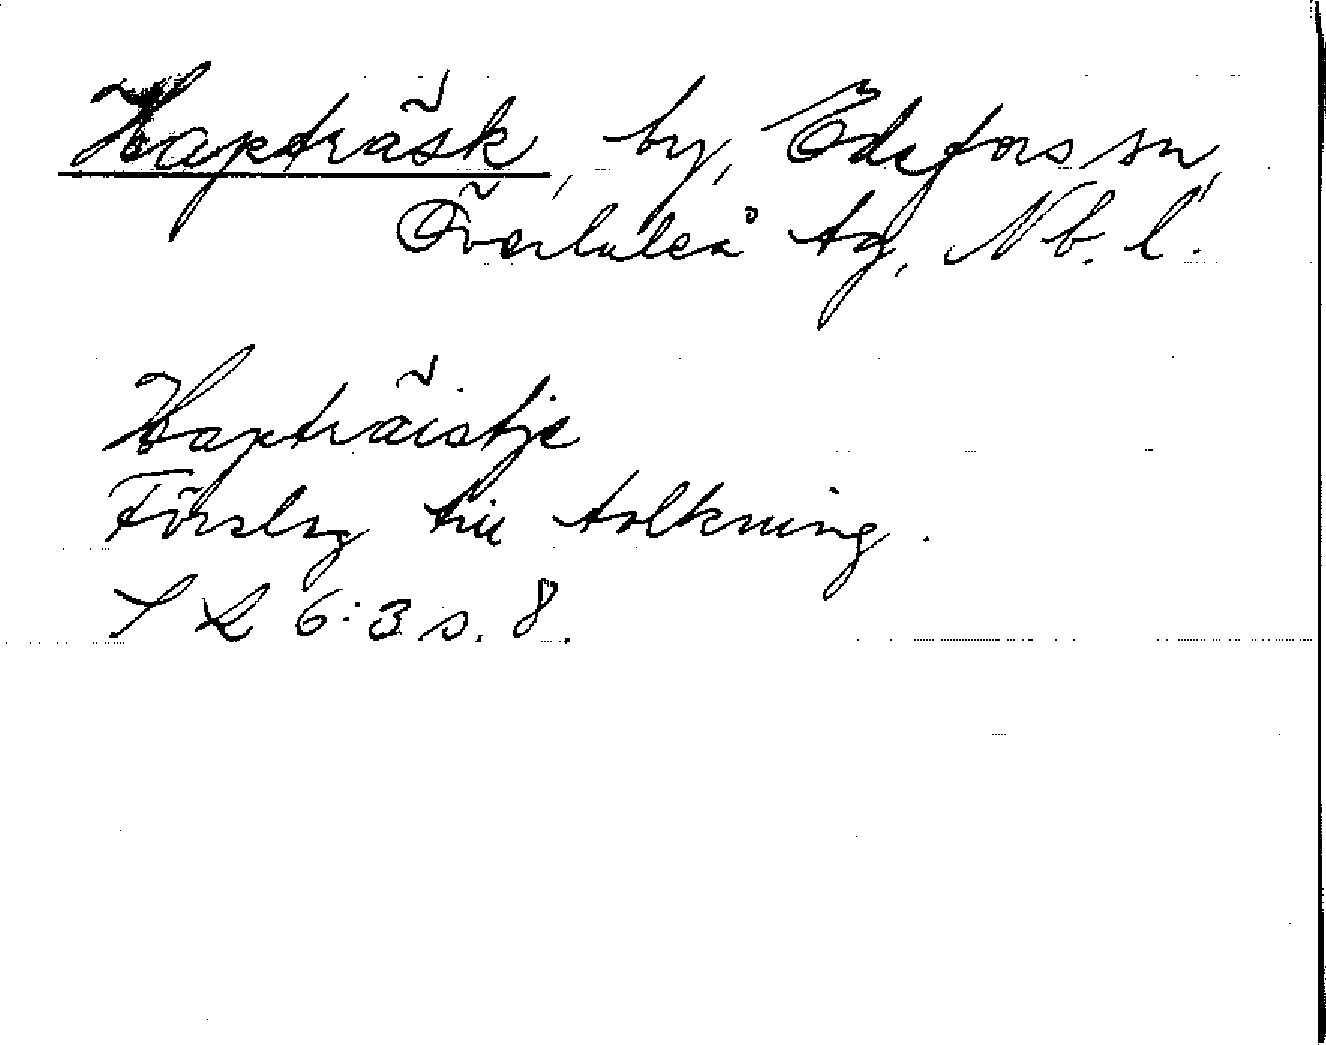 Haxträsk, by, Edefors sn,
Överluleå tg, Nb. l.
Haxträistje
Förslag till tolkning.
S L 6:3 s. 8.